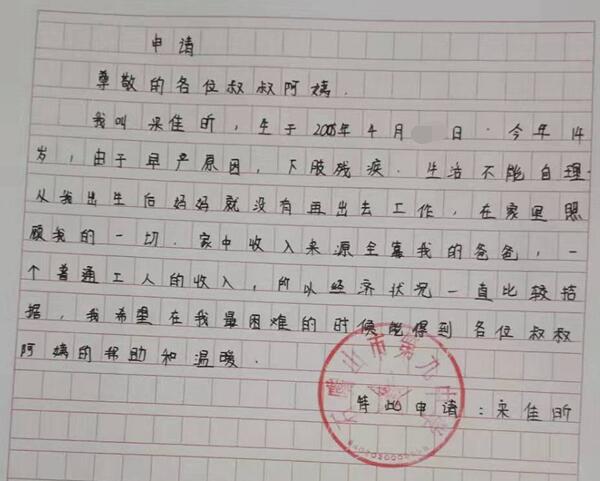 申请
尊敬的各位叔叔阿姨.
我叫宋佳昕,生于2005年4月 日.今年14
岁,由于早产原因,下肢残疾.生活不能自理.
从我出生后妈妈就没有再出去工作,在家里照
顾我的一切.家中收入来源全靠我的爸爸,一
个普通工人的收入,所以经济状况一直比较拮
据,我希望在我最困难的时候能得到各位叔叔
阿姨的帮助和温暖.
山市第九中学
特此申请:宋佳昕